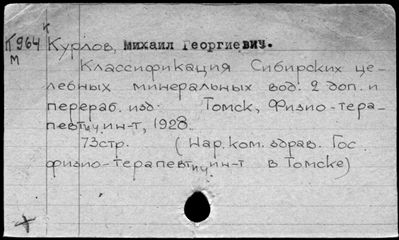 К964 Курлов, Михаил Георгиевич.
М
Классификация Сибирских це-
лебных минеральных вод. 2 доп. и
перераб. изд. Томск, Физио-тера-
певтич ин-т, 1928.
73стр. (Нар. ком. здрав. Гос.
физио-терапевтич ин-т в Томске)